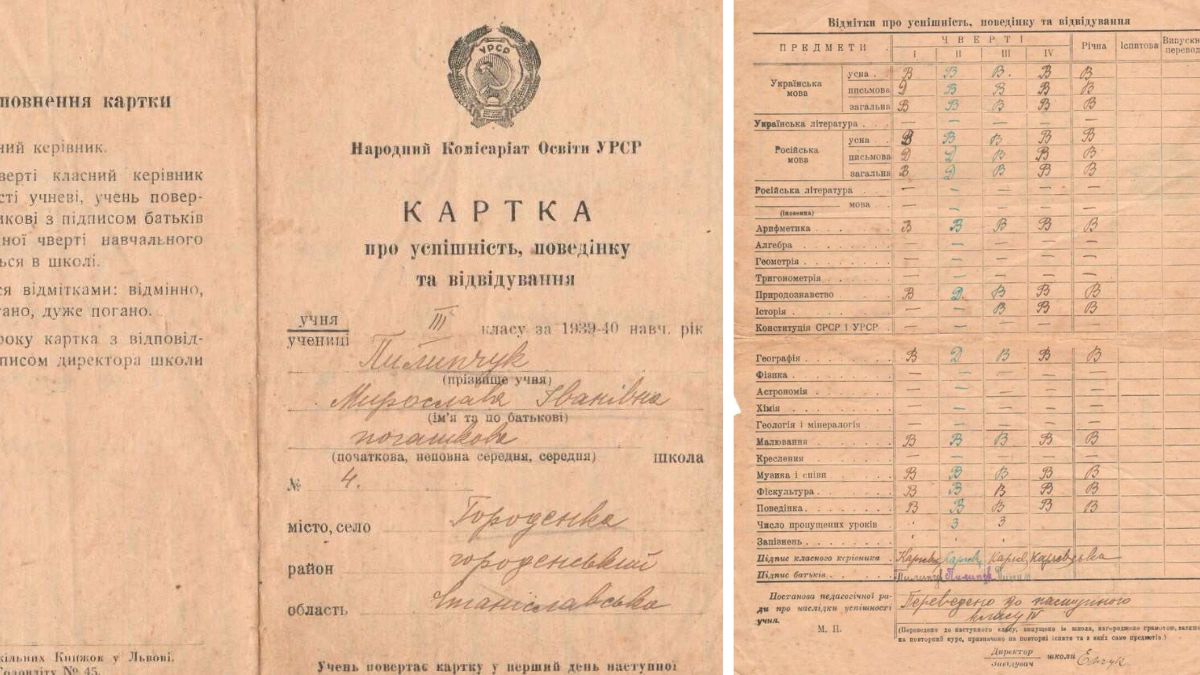 повнення картки
ний керівник.
верті класний керівник
сті учневі, учень повер-
никові з підписом батьків
ної чверті навчального
ься в школі.
ся відмітками: відмінно,
гано, дуже погано.
року картка з відповід-
писом директора школи
кільних Книжок у Львові.
№ 45.
УРСР
Народний Комісаріат Освіти УРСР
КАРТКА
про успішність, поведінку
та відвідування
учня
учениці III класу за 1939-40 навч. рік
Пилипчук
(прізвище учня)
Мирослава Іванівна
(ім'я та по батькові)
початкова
(початкова, неповна середня, середня) школа
№ 4.
місто, село Городенка
район городенський
область Станіславська
Учень повертає картку у перший день наступної
Відмітки про успішність, поведінку та відвідування
ПРЕДМЕТИ ЧВЕРТІ Річна Іспитова Випускн перевод
I II III IV
Українська мова
усна В В В. В В
письмова Д В В В В
загальна В В В В В
Українська література — — — — —
Російська мова
усна В В В В В
письмова Д Д В В В
загальна В Д В В В
Російська література — — — — —
мова — — — — —
(іноземна)
Арифметика В В В В В
Алгебра — — — —
Геометрія — — — — —
Тригонометрія — — — —
Природознавство В Д В В В
Історія — — В В В
Конституція СРСР і УРСР — — — — —
Географія В Д В В В
Фізика — — — — —
Астрономія — — — —
Хімія — — — — —
Геологія і мінералогія — — — — —
Малювання В В В В В
Креслення — — — — —
Музика і співи В В В В В
Фіскультура В В В В В
Поведінка В В В В В
Число пропущених уроків 3 3
Запізнень
Підпис класного керівника
Підпис батьків Пилипчук
Постанова педагогічної ра-
ди про наслідки успішності
учня.
Переведено до наступного
класу IV
М. П.
(Переведено до наступного класу, випущено із школи, нагороджено грамотою,
на повторний курс, призначено на повторні іспити та з яких саме предметів.)
Директор
Завідувач школи